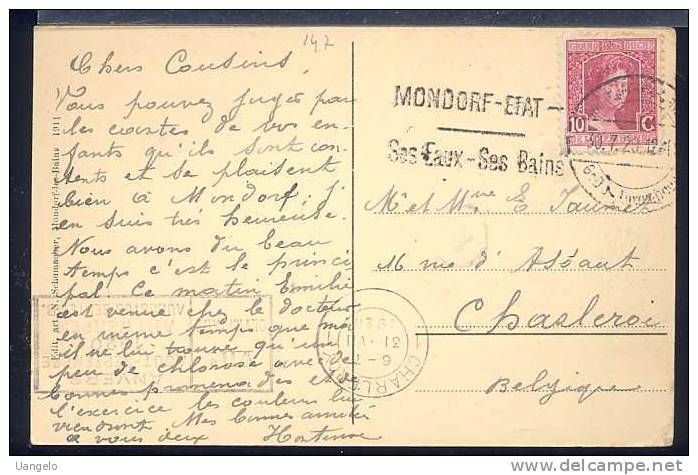 147
Chers Cousins,
Vous pouvez juger par
les cartes de vos en-
fants qu'ils sont con-
tents et se plaisent
bien à Mondorf, j'
en suis très heureuse.
Nous avons du beau
temps c'est le princi
pal. Ce matin Emilie
est venue chez le docteur
en même temps que moi
il ne lui trouve qu'un
peu de chlorose avec de
bonnes promenades et
l'exercice les couleurs lui
viendront Mes bonnes amitiés
à vous deux Hortense
Edit. art. Schumacher, Mondorf-les-Bains 1911
MONDORF-ETAT-
Ses Eaux-Ses Bains
GRAND DUCHÉ
10 C
Mr et Mme E Jaumet
16 rue d'Assaut
Charleroi
Belgique
CHARLEROI
6-7
31·VII
ANVERS
Uangelo
www.delcampe.net